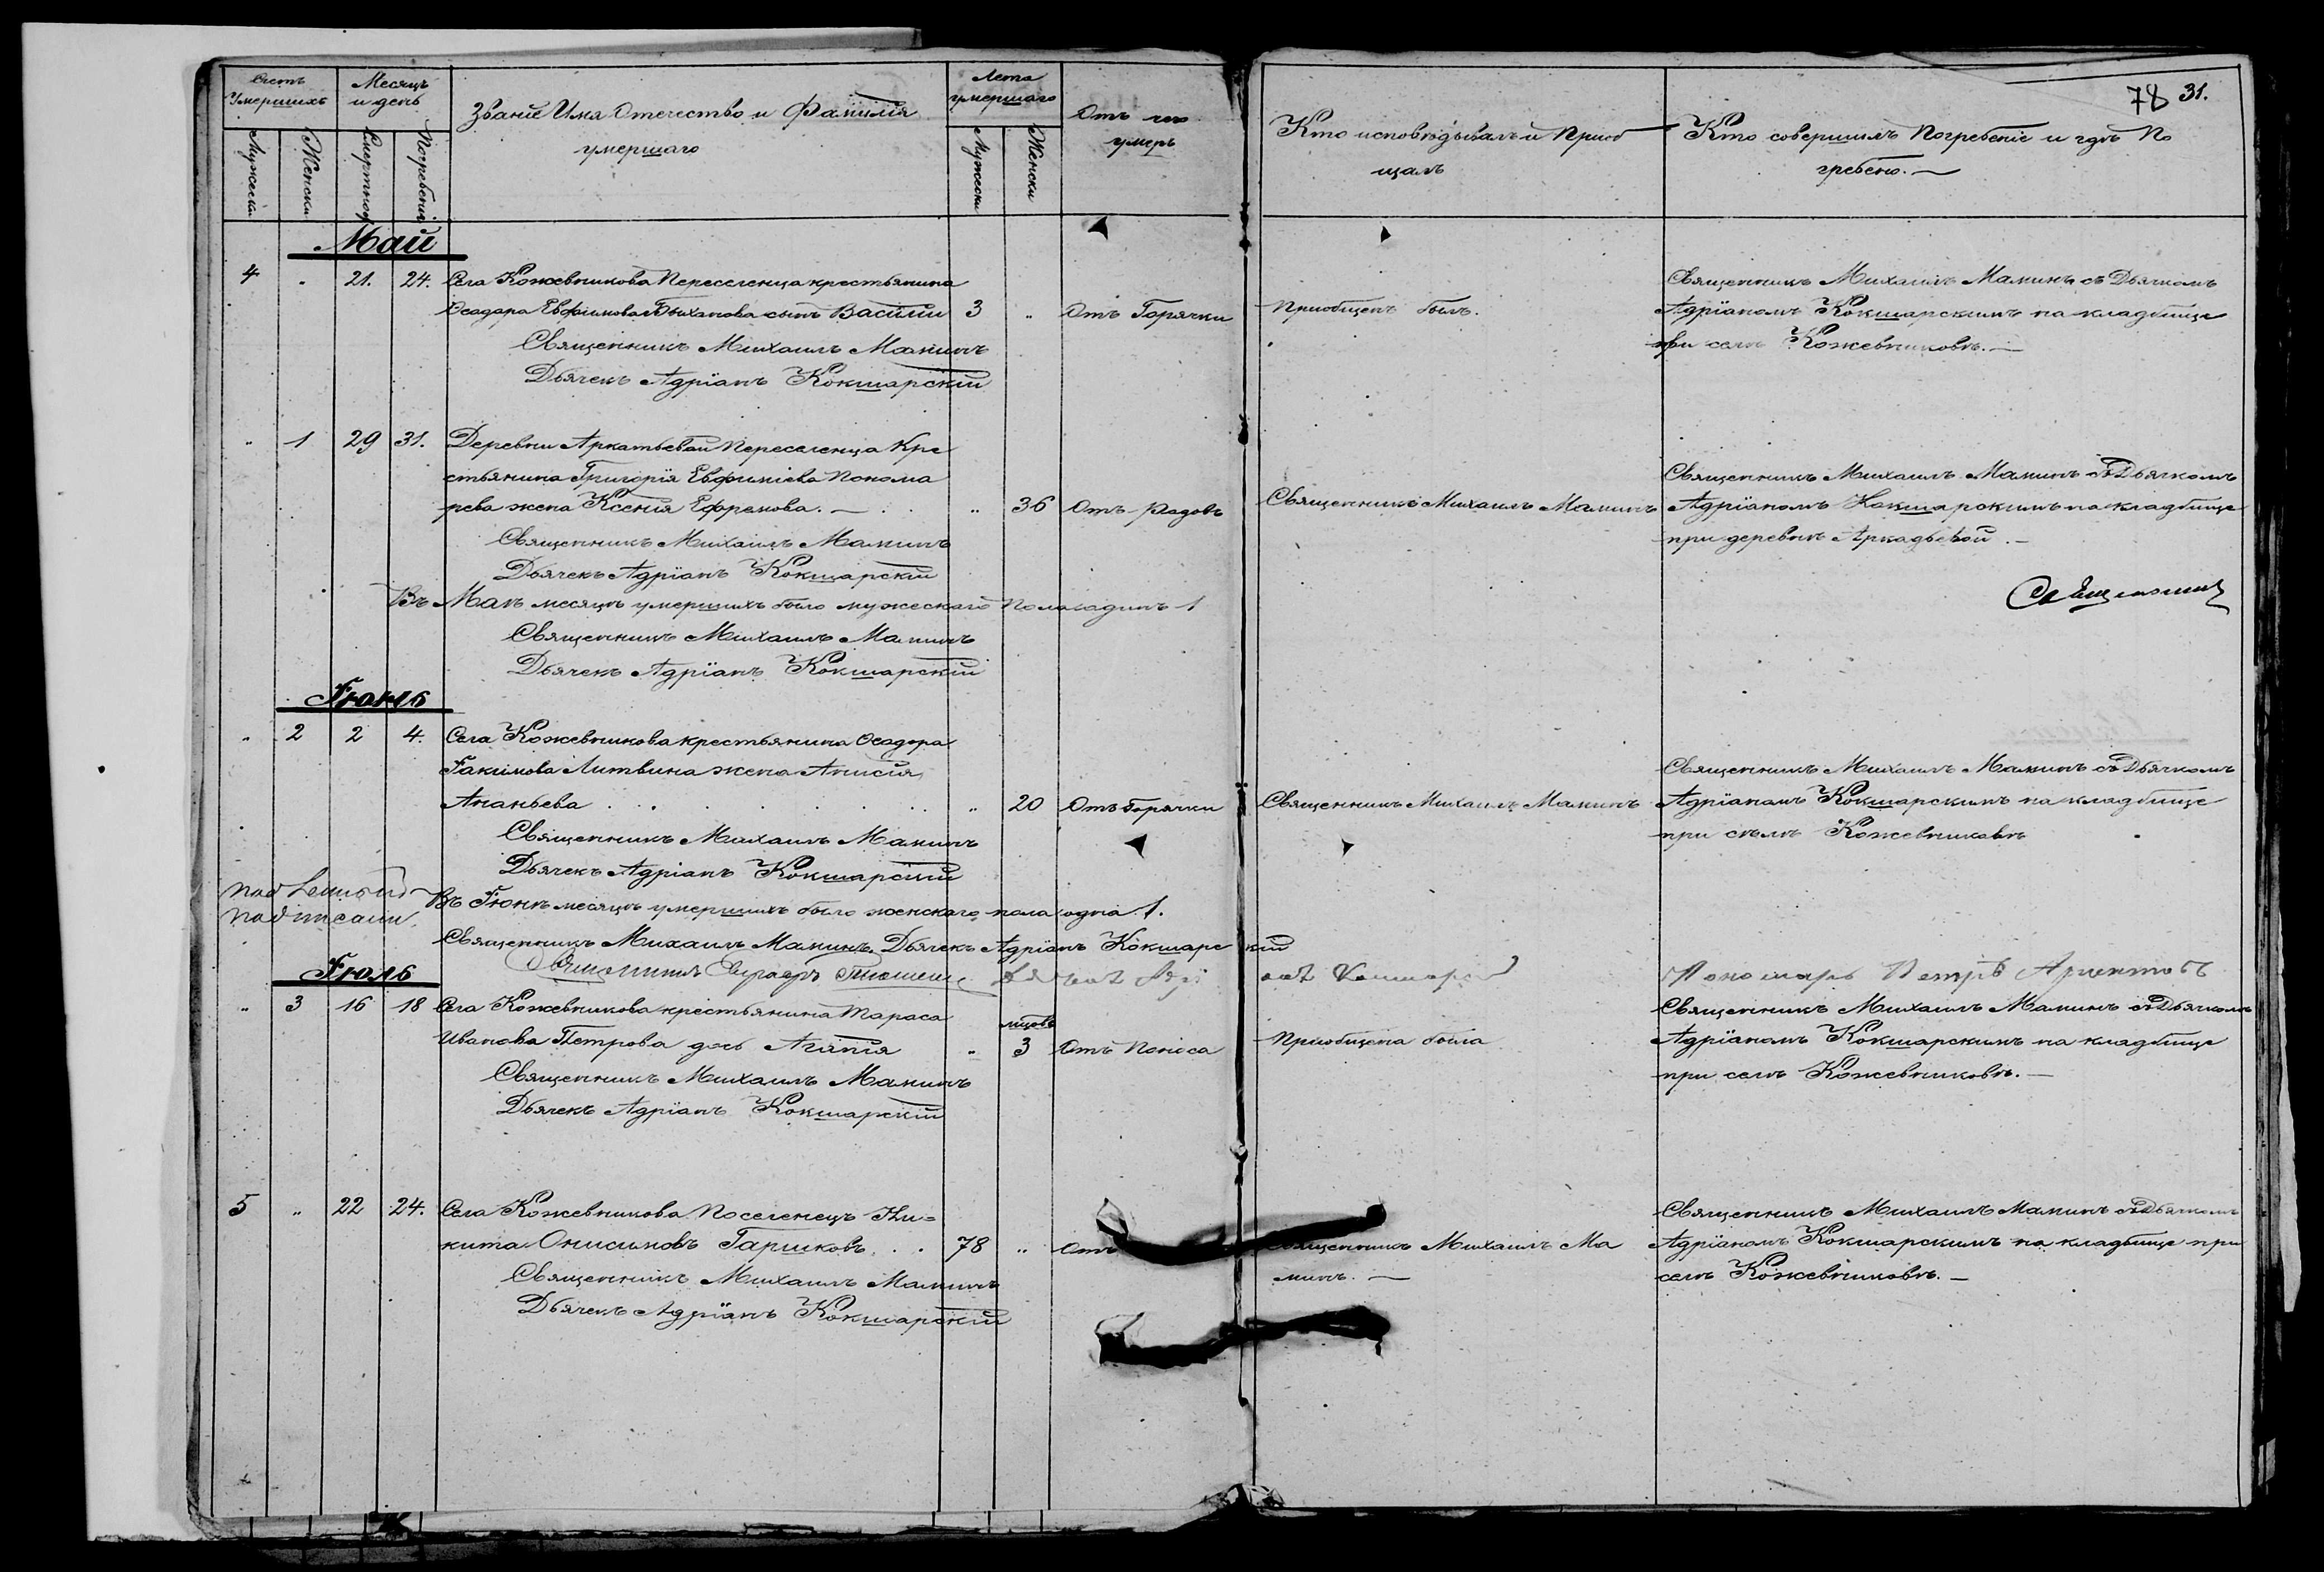 78 31.
Счетъ Умершихъ
Месяцъ и день
Званiе Имя Отечество и Фамилiя
умершаго
Лета умершаго
Отъ чего
умеръ
Кто исповѣдывалъ и Приоб
щалъ
Кто совершилъ Погребенiе и гдѣ По
гребено. —
Мужески
Женски
Смертной
Погребенiи
Мужески
Женски
Май
4 " 21. 24. Села Кожевникова Переселенца крестьянина
Ѳеодора Евфимова сынъ Василiй 3 " Отъ Горячки
Священникъ Михаилъ Маминъ
Дьячекъ Адрiанъ Кокшарскiй
Приобщенъ былъ.
Священникъ Михаилъ Маминъ съ Дьячкомъ
Адрiаномъ Кокшарскимъ на кладбище
при селѣ Кожевниковѣ. —
" 1 29 31. Деревни Аркатьевой Переселенца Кре
стьянина Григорiя Евфимiева Понома
рева жена Ксенiя Ефремова. — " 36 Отъ Родовъ
Священникъ Михаилъ Маминъ
Дьячекъ Адрiанъ Кокшарскiй
Священникъ Михаилъ Маминъ
Священникъ Михаилъ Маминъ съ Дьячкомъ
Адрiаномъ Кокшарскимъ на кладбище
при деревнѣ Аркадьевой. —
Въ Маѣ месяцѣ умершихъ было мужескаго пола одинъ 1
Священникъ Михаилъ Маминъ
Дьячекъ Адрiанъ Кокшарскiй
Iюнь
" 2 2 4. Села Кожевникова крестьянина Ѳеодора
Iакимова Литвина жена Анисiя
Ананьева " 20 Отъ Горячки
Священникъ Михаилъ Маминъ
Дьячекъ Адрiанъ Кокшарскiй
Священникъ Михаилъ Маминъ
Священникъ Михаилъ Маминъ съ Дьячкомъ
Адрiаномъ Кокшарскимъ на кладбище
при сѣлѣ Кожевниковѣ
Въ Iюнѣ месяцѣ умершихъ было женскаго пола одна 1.
Священникъ Михаилъ Маминъ Дьячекъ Адрiанъ Кокшарскiй
Пономарь Петръ
Iюль
" 3 16 18 Села Кожевникова крестьянина Тараса
Иванова Петрова дочь Агапiя " мцовъ 3 Отъ Поноса
Священникъ Михаилъ Маминъ
Дьячекъ Адрiанъ Кокшарскiй
Приобщена была
Священникъ Михаилъ Маминъ съ Дьячкомъ
Адрiаномъ Кокшарскимъ на кладбище
при селѣ Кожевниковѣ. —
5 " 22 24. Села Кожевникова Поселенецъ Ни=
кита Онисимовъ Гаршковъ. . . 78 " Отъ
Священникъ Михаилъ Маминъ
Дьячекъ Адрiанъ Кокшарскiй
Священникъ Михаилъ Ма
минъ. —
Священникъ Михаилъ Маминъ съ Дьячкомъ
Адрiаномъ Кокшарскимъ на кладбище при
селѣ Кожевниковѣ. —